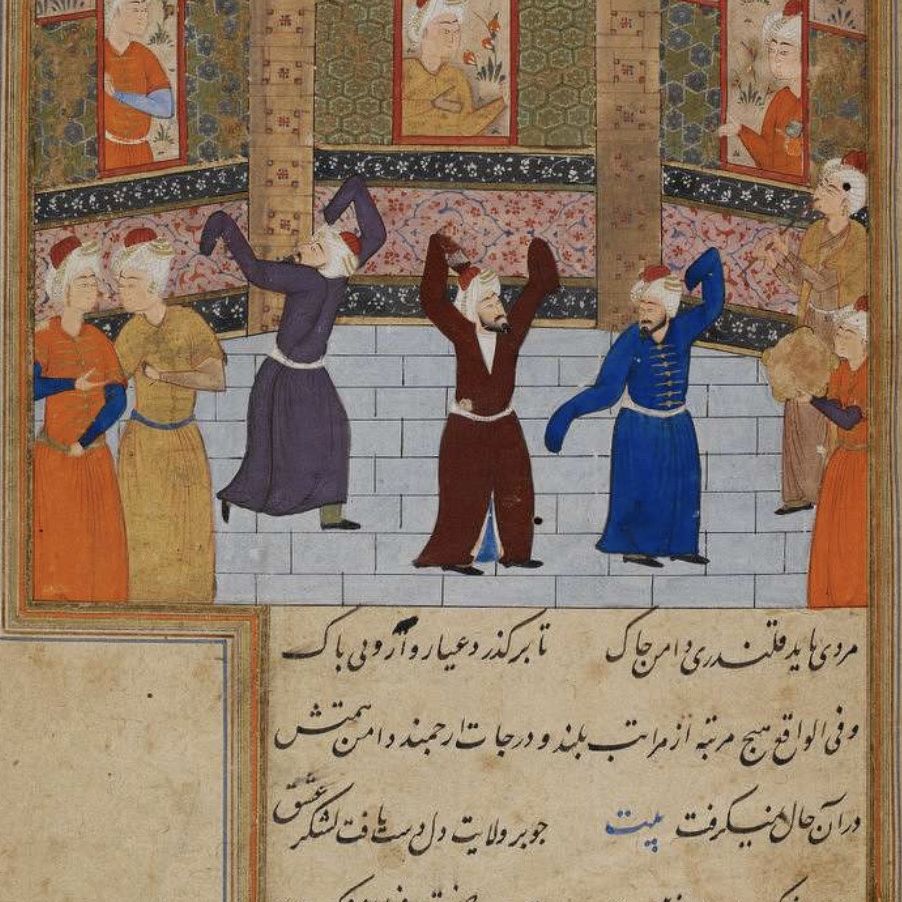 مردی باید قلندری دامن چاک تا برگذرد عیار وار و بی باک
و فی الواقع هیچ مرتبه از مراتب بلند و درجات ارجمند دامن همتش
در آن حال نمیگرفت بیت چو بر ولایت دل دست یافت لشکر عشق